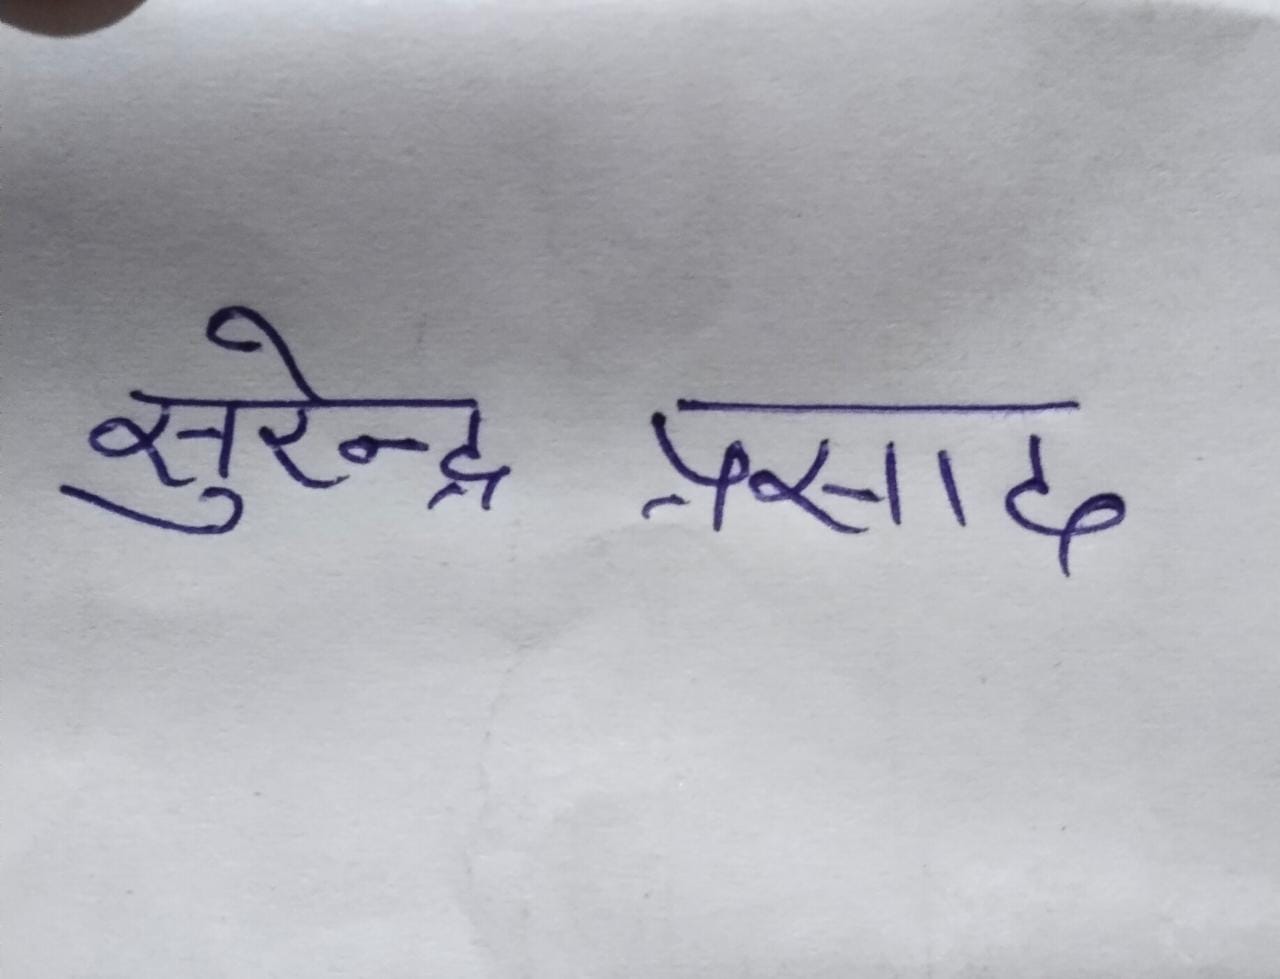 सुरेन्द्र प्रसाद